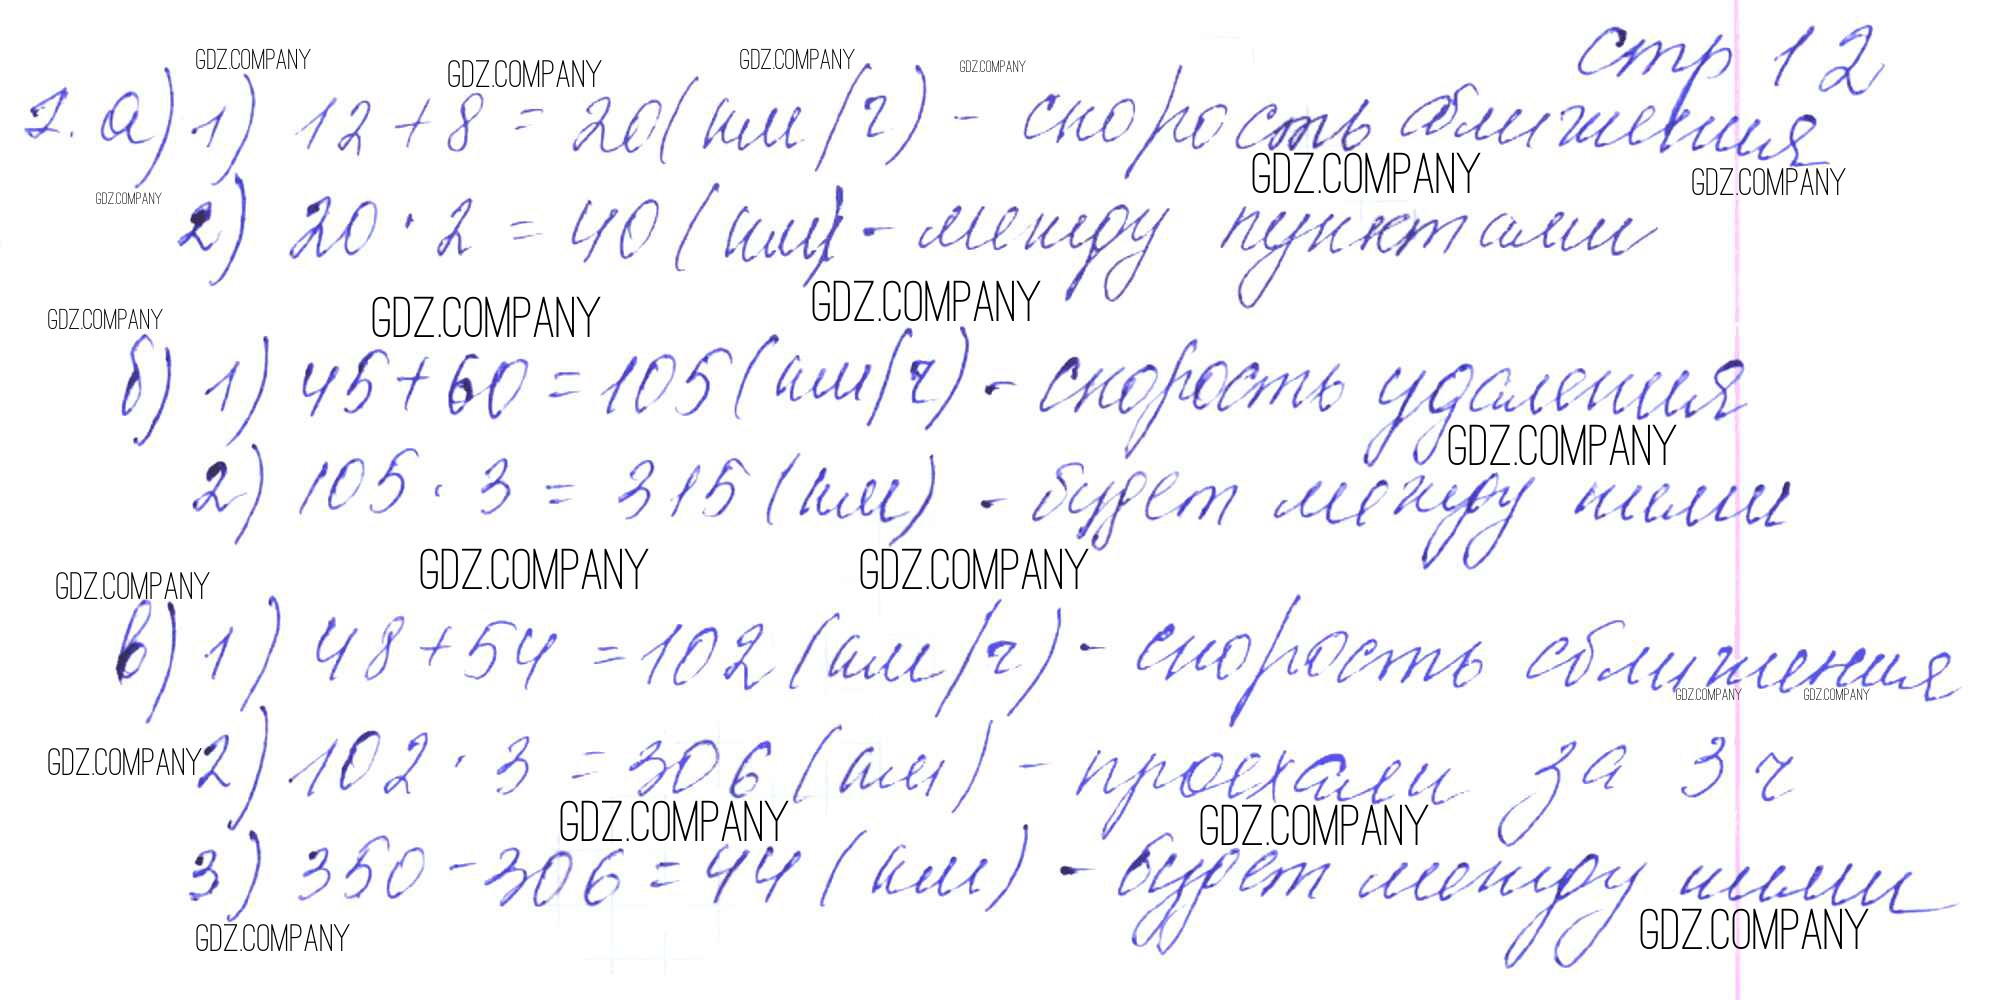 стр 12
GDZ.COMPANY GDZ.COMPANY GDZ.COMPANY GDZ.COMPANY
1. а) 1) 12 + 8 = 20 (км/ч) - скорость сближения
GDZ.COMPANY GDZ.COMPANY
GDZ.COMPANY
2) 20 · 2 = 40 (км) - между пунктами
GDZ.COMPANY GDZ.COMPANY GDZ.COMPANY
б) 1) 45 + 60 = 105 (км/ч) - скорость удаления
GDZ.COMPANY
2) 105 · 3 = 315 (км) - будет между ними
GDZ.COMPANY GDZ.COMPANY GDZ.COMPANY
в) 1) 48 + 54 = 102 (км/ч) - скорость сближения
GDZ.COMPANY GDZ.COMPANY
GDZ.COMPANY
2) 102 · 3 = 306 (км) - проехали за 3 ч
GDZ.COMPANY GDZ.COMPANY
3) 350 - 306 = 44 (км) - будет между ними
GDZ.COMPANY GDZ.COMPANY